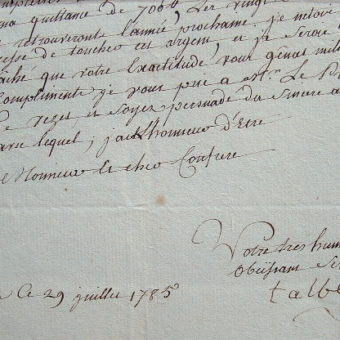 ma quittance de 700# Les vingt
se retrouveront l'année prochaine. je
presse de toucher cet argent, et je serai
fâché que votre Exactitude, vous gênat
Compliments je vous prie a Mr. Le
De rezet et soyez persuadé du sincere
avec lequel, j'ai L'honneur d'Etre
Monsieur le cher Confrere
Votre tres hum
Obeissant Se
talbe
Ce 29 juillet 1785